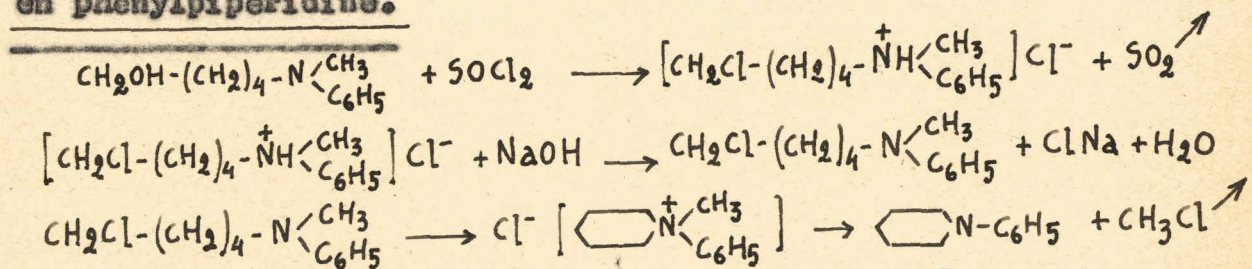 en phenylpiperidine.
CH2OH-(CH2)4-N<CH3 C6H5 + SOCl2 ⟶ [CH2Cl-(CH2)4-N⁺H<CH3 C6H5]Cl⁻ + SO2↗
[CH2Cl-(CH2)4-N⁺H<CH3 C6H5]Cl⁻ + NaOH ⟶ CH2Cl-(CH2)4-N<CH3 C6H5 + ClNa + H2O
CH2Cl-(CH2)4-N<CH3 C6H5 ⟶ Cl⁻ [N⁺<CH3 C6H5] ⟶ N-C6H5 + CH3Cl↗